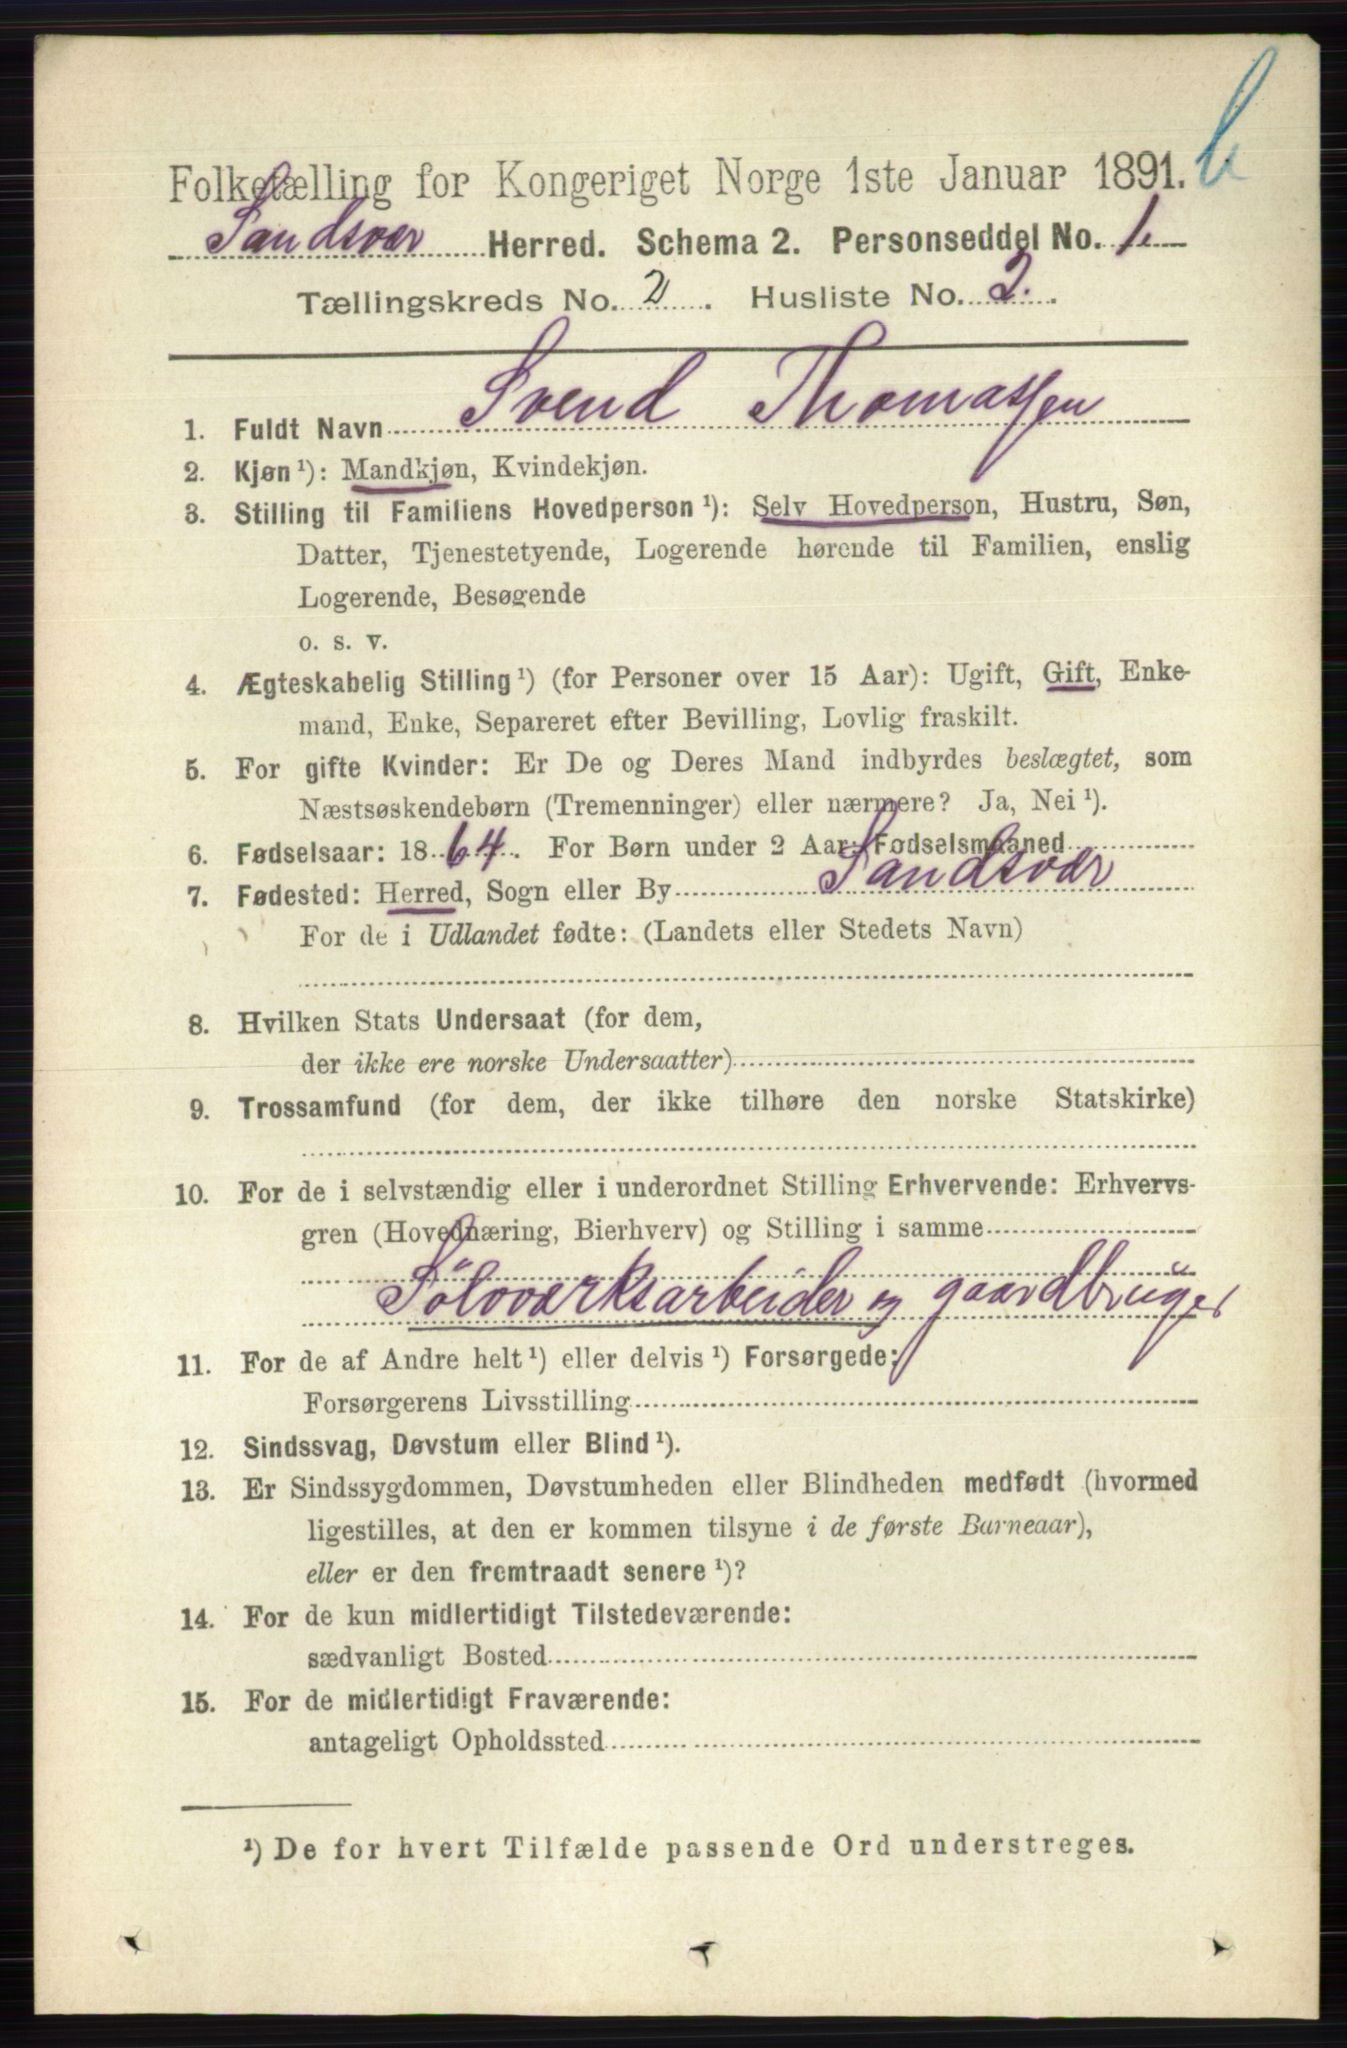 Folketælling for Kongeriget Norge 1ste Januar 1891.
Sandsvær Herred. Schema 2. Personseddel No. 1.
Tællingskreds No. 2. Husliste No. 2.
1. Fuldt Navn Svend Thomassen
2. Kjøn ¹): Mandkjøn, Kvindekjøn.
3. Stilling til Familiens Hovedperson ¹): Selv Hovedperson, Hustru, Søn,
Datter, Tjenestetyende, Logerende hørende til Familien, enslig
Logerende, Besøgende
o. s. v.
4. Ægteskabelig Stilling ¹) (for Personer over 15 Aar): Ugift, Gift, Enke-
mand, Enke, Separeret efter Bevilling, Lovlig fraskilt.
5. For gifte Kvinder: Er De og Deres Mand indbyrdes beslægtet, som
Næstsøskendebørn (Tremenninger) eller nærmere? Ja, Nei ¹).
6. Fødselsaar: 1864. For Børn under 2 Aar: Fødselsmaaned
7. Fødested: Herred, Sogn eller By Sandsvær
For de i Udlandet fødte: (Landets eller Stedets Navn)
8. Hvilken Stats Undersaat (for dem,
der ikke ere norske Undersaatter)
9. Trossamfund (for dem, der ikke tilhøre den norske Statskirke)
10. For de i selvstændig eller i underordnet Stilling Erhvervende: Erhvervs-
gren (Hovednæring, Bierhverv) og Stilling i samme
Sølvværksarbeider og gaardbruger
11. For de af Andre helt ¹) eller delvis ¹) Forsørgede:
Forsørgerens Livsstilling
12. Sindssvag, Døvstum eller Blind ¹).
13. Er Sindssygdommen, Døvstumheden eller Blindheden medfødt (hvormed
ligestilles, at den er kommen tilsyne i de første Barneaar),
eller er den fremtraadt senere ¹)?
14. For de kun midlertidigt Tilstedeværende:
sædvanligt Bosted
15. For de midlertidigt Fraværende:
antageligt Opholdssted
¹) De for hvert Tilfælde passende Ord understreges.